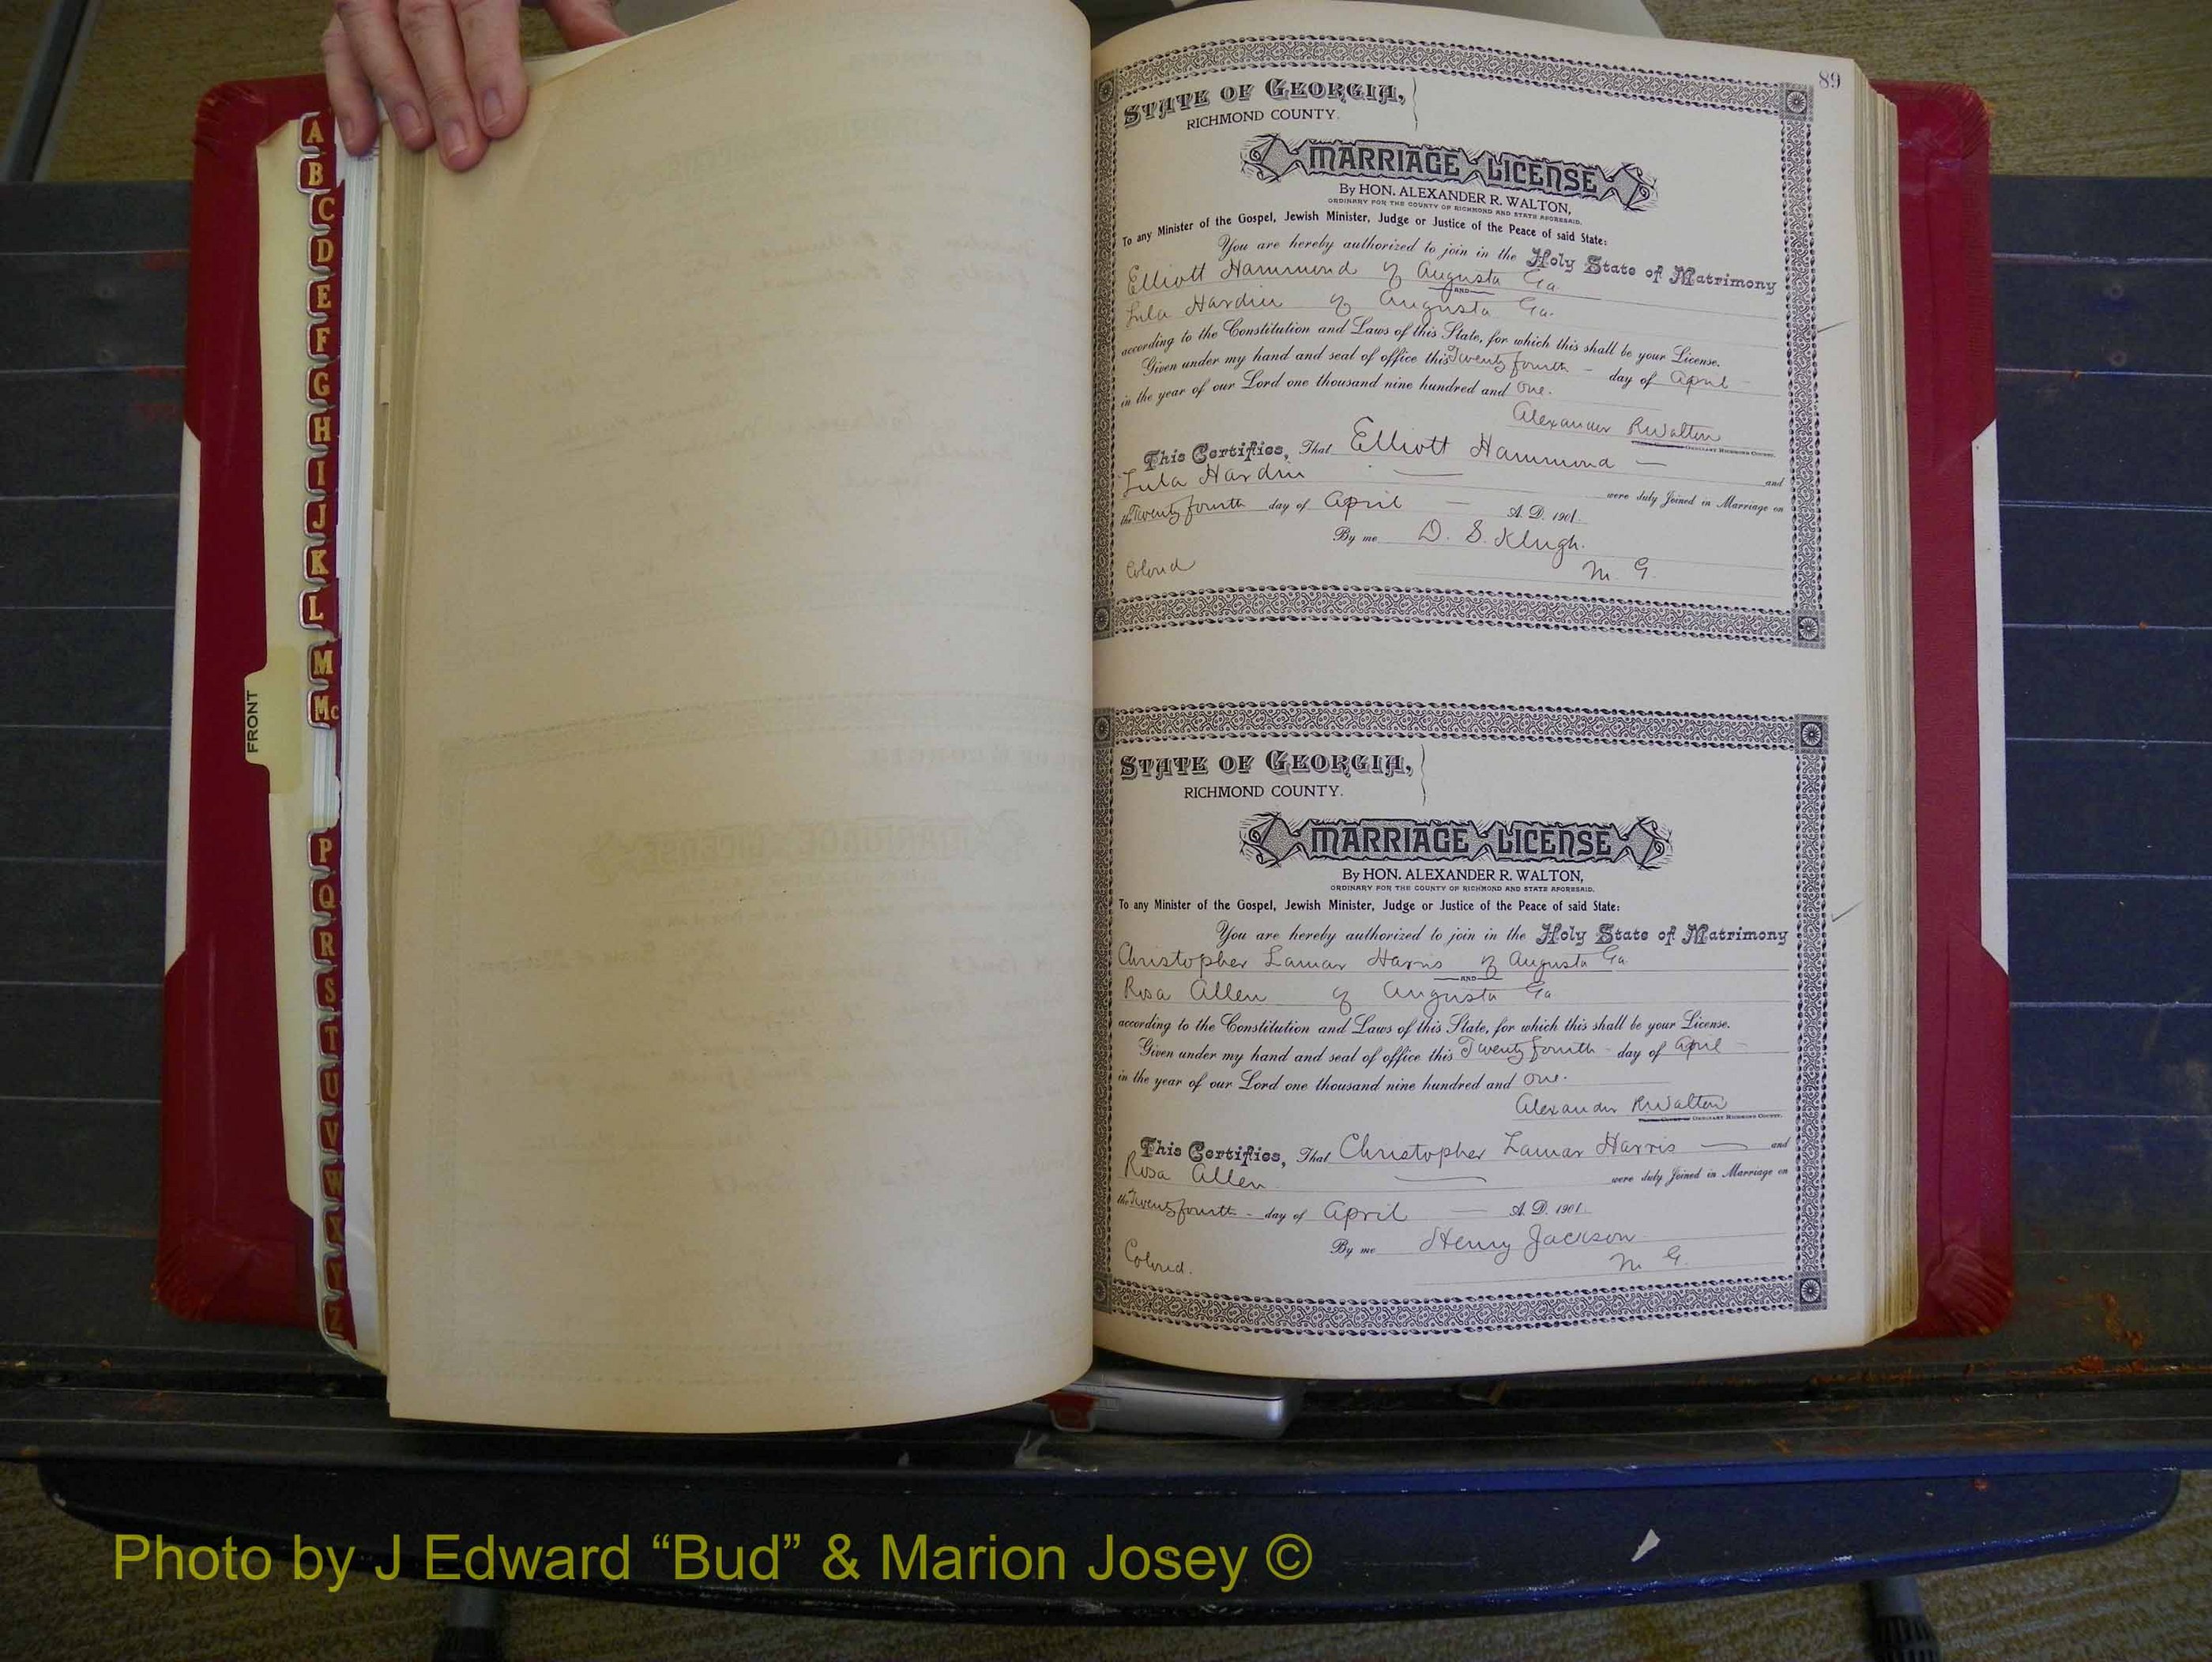 A
B
C
D
E
F
G
H
I
J
K
L
M
Mc
FRONT
P
Q
R
S
T
U
V
W
X
Y
Z
89
STATE OF GEORGIA,
RICHMOND COUNTY.
MARRIAGE LICENSE
By HON. ALEXANDER R. WALTON,
ORDINARY FOR THE COUNTY OF RICHMOND AND STATE AFORESAID.
To any Minister of the Gospel, Jewish Minister, Judge or Justice of the Peace of said State:
You are hereby authorized to join in the Holy State of Matrimony
Elliott Hammond of Augusta Ga
AND
Lula Hardin of Augusta Ga.
according to the Constitution and Laws of this State, for which this shall be your License.
Given under my hand and seal of office this Twenty fourth - day of April -
in the year of our Lord one thousand nine hundred and One.
Alexander R Walton
ORDINARY RICHMOND COUNTY.
This Certifies, That Elliott Hammond — and
Lula Hardin — were duly Joined in Marriage on
the Twenty fourth day of April — A. D. 1901.
By me D. S. Klugh.
Colored M. G.
STATE OF GEORGIA,
RICHMOND COUNTY.
MARRIAGE LICENSE
By HON. ALEXANDER R. WALTON,
ORDINARY FOR THE COUNTY OF RICHMOND AND STATE AFORESAID.
To any Minister of the Gospel, Jewish Minister, Judge or Justice of the Peace of said State:
You are hereby authorized to join in the Holy State of Matrimony
Christopher Lamar Harris of Augusta Ga
AND
Rosa Allen of Augusta Ga
according to the Constitution and Laws of this State, for which this shall be your License.
Given under my hand and seal of office this Twenty fourth - day of April -
in the year of our Lord one thousand nine hundred and One.
Alexander R Walton
ORDINARY RICHMOND COUNTY.
This Certifies, That Christopher Lamar Harris — and
Rosa Allen — were duly Joined in Marriage on
the Twenty fourth - day of April — A. D. 1901.
By me Henry Jackson
Colored. M G.
Photo by J Edward “Bud” & Marion Josey ©